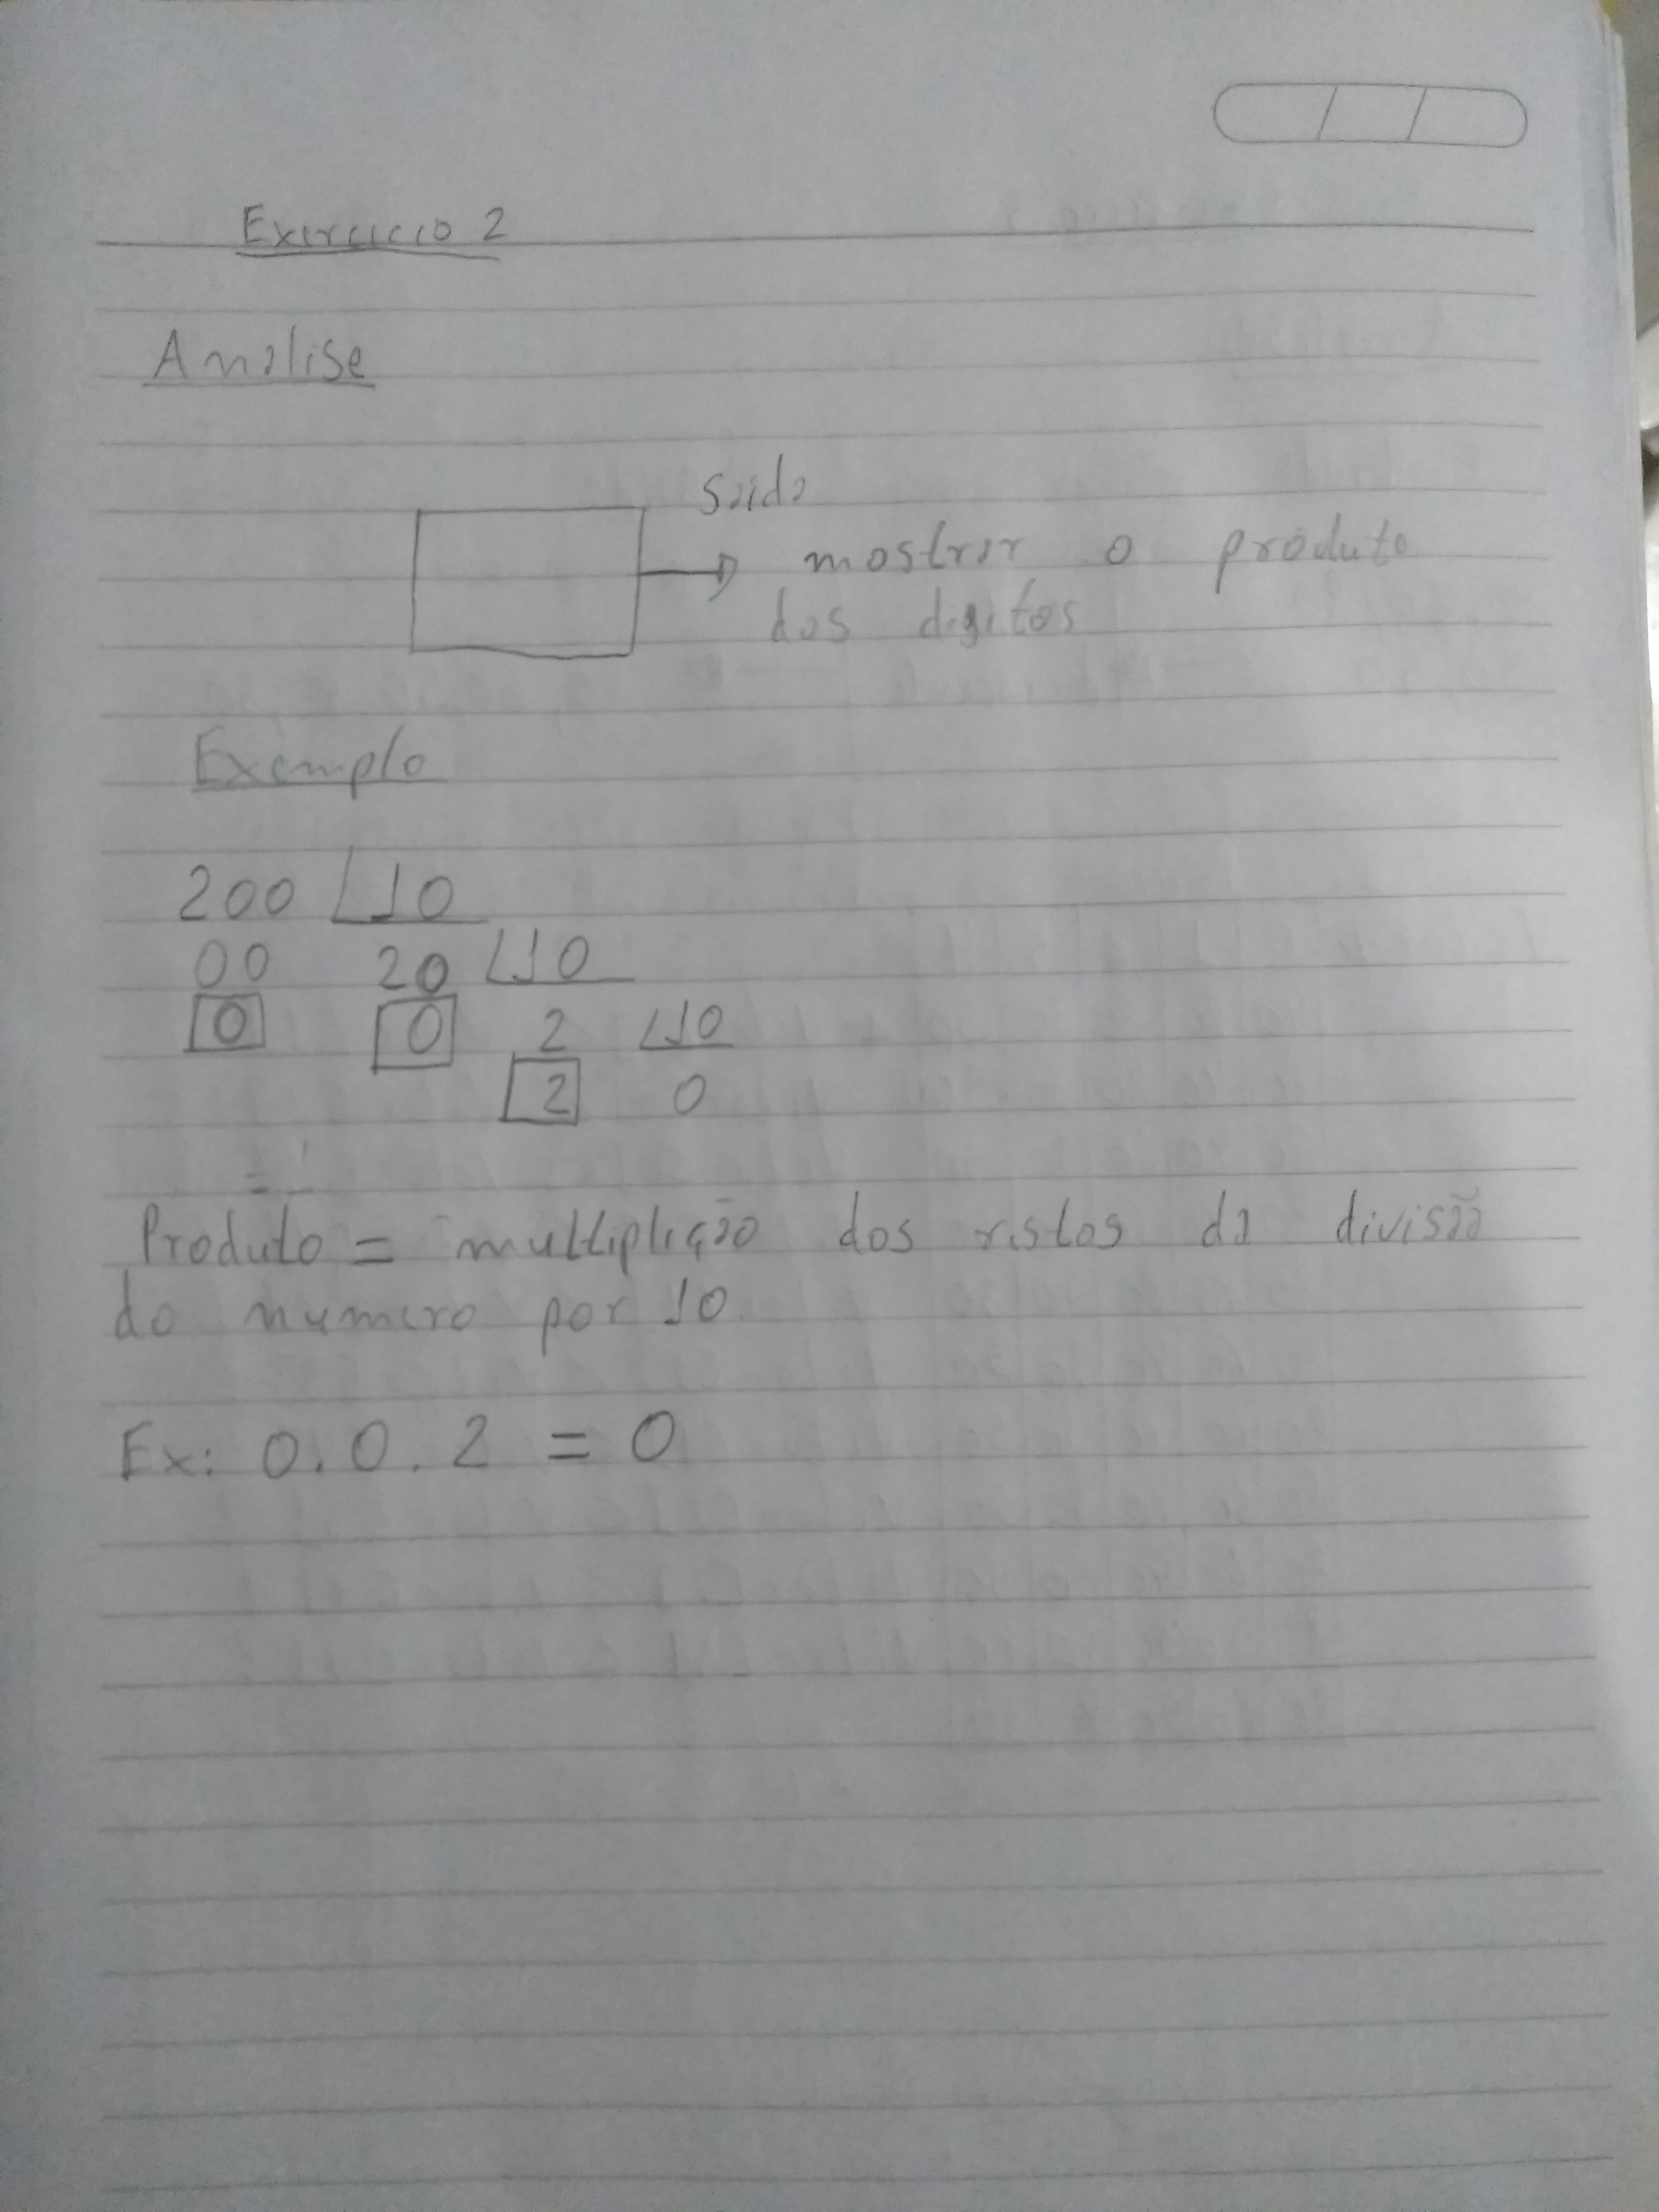 Exercicio 2
Analise
Saida
mostrar o produto
dos digitos
Exemplo
200 10
00 20 10
0 0 2 10
2 0
=
Produto = multiplição dos restos da divisão
do numero por 10
Ex: 0.0.2 = 0